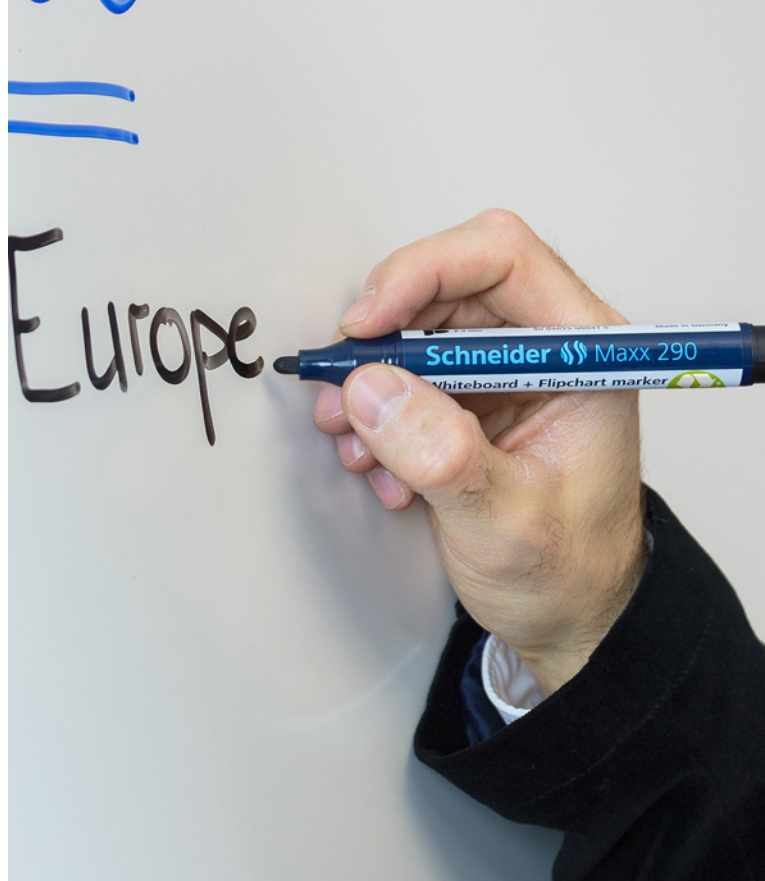 Europe
Made in Germany
Schneider Maxx 290
Whiteboard + Flipchart marker